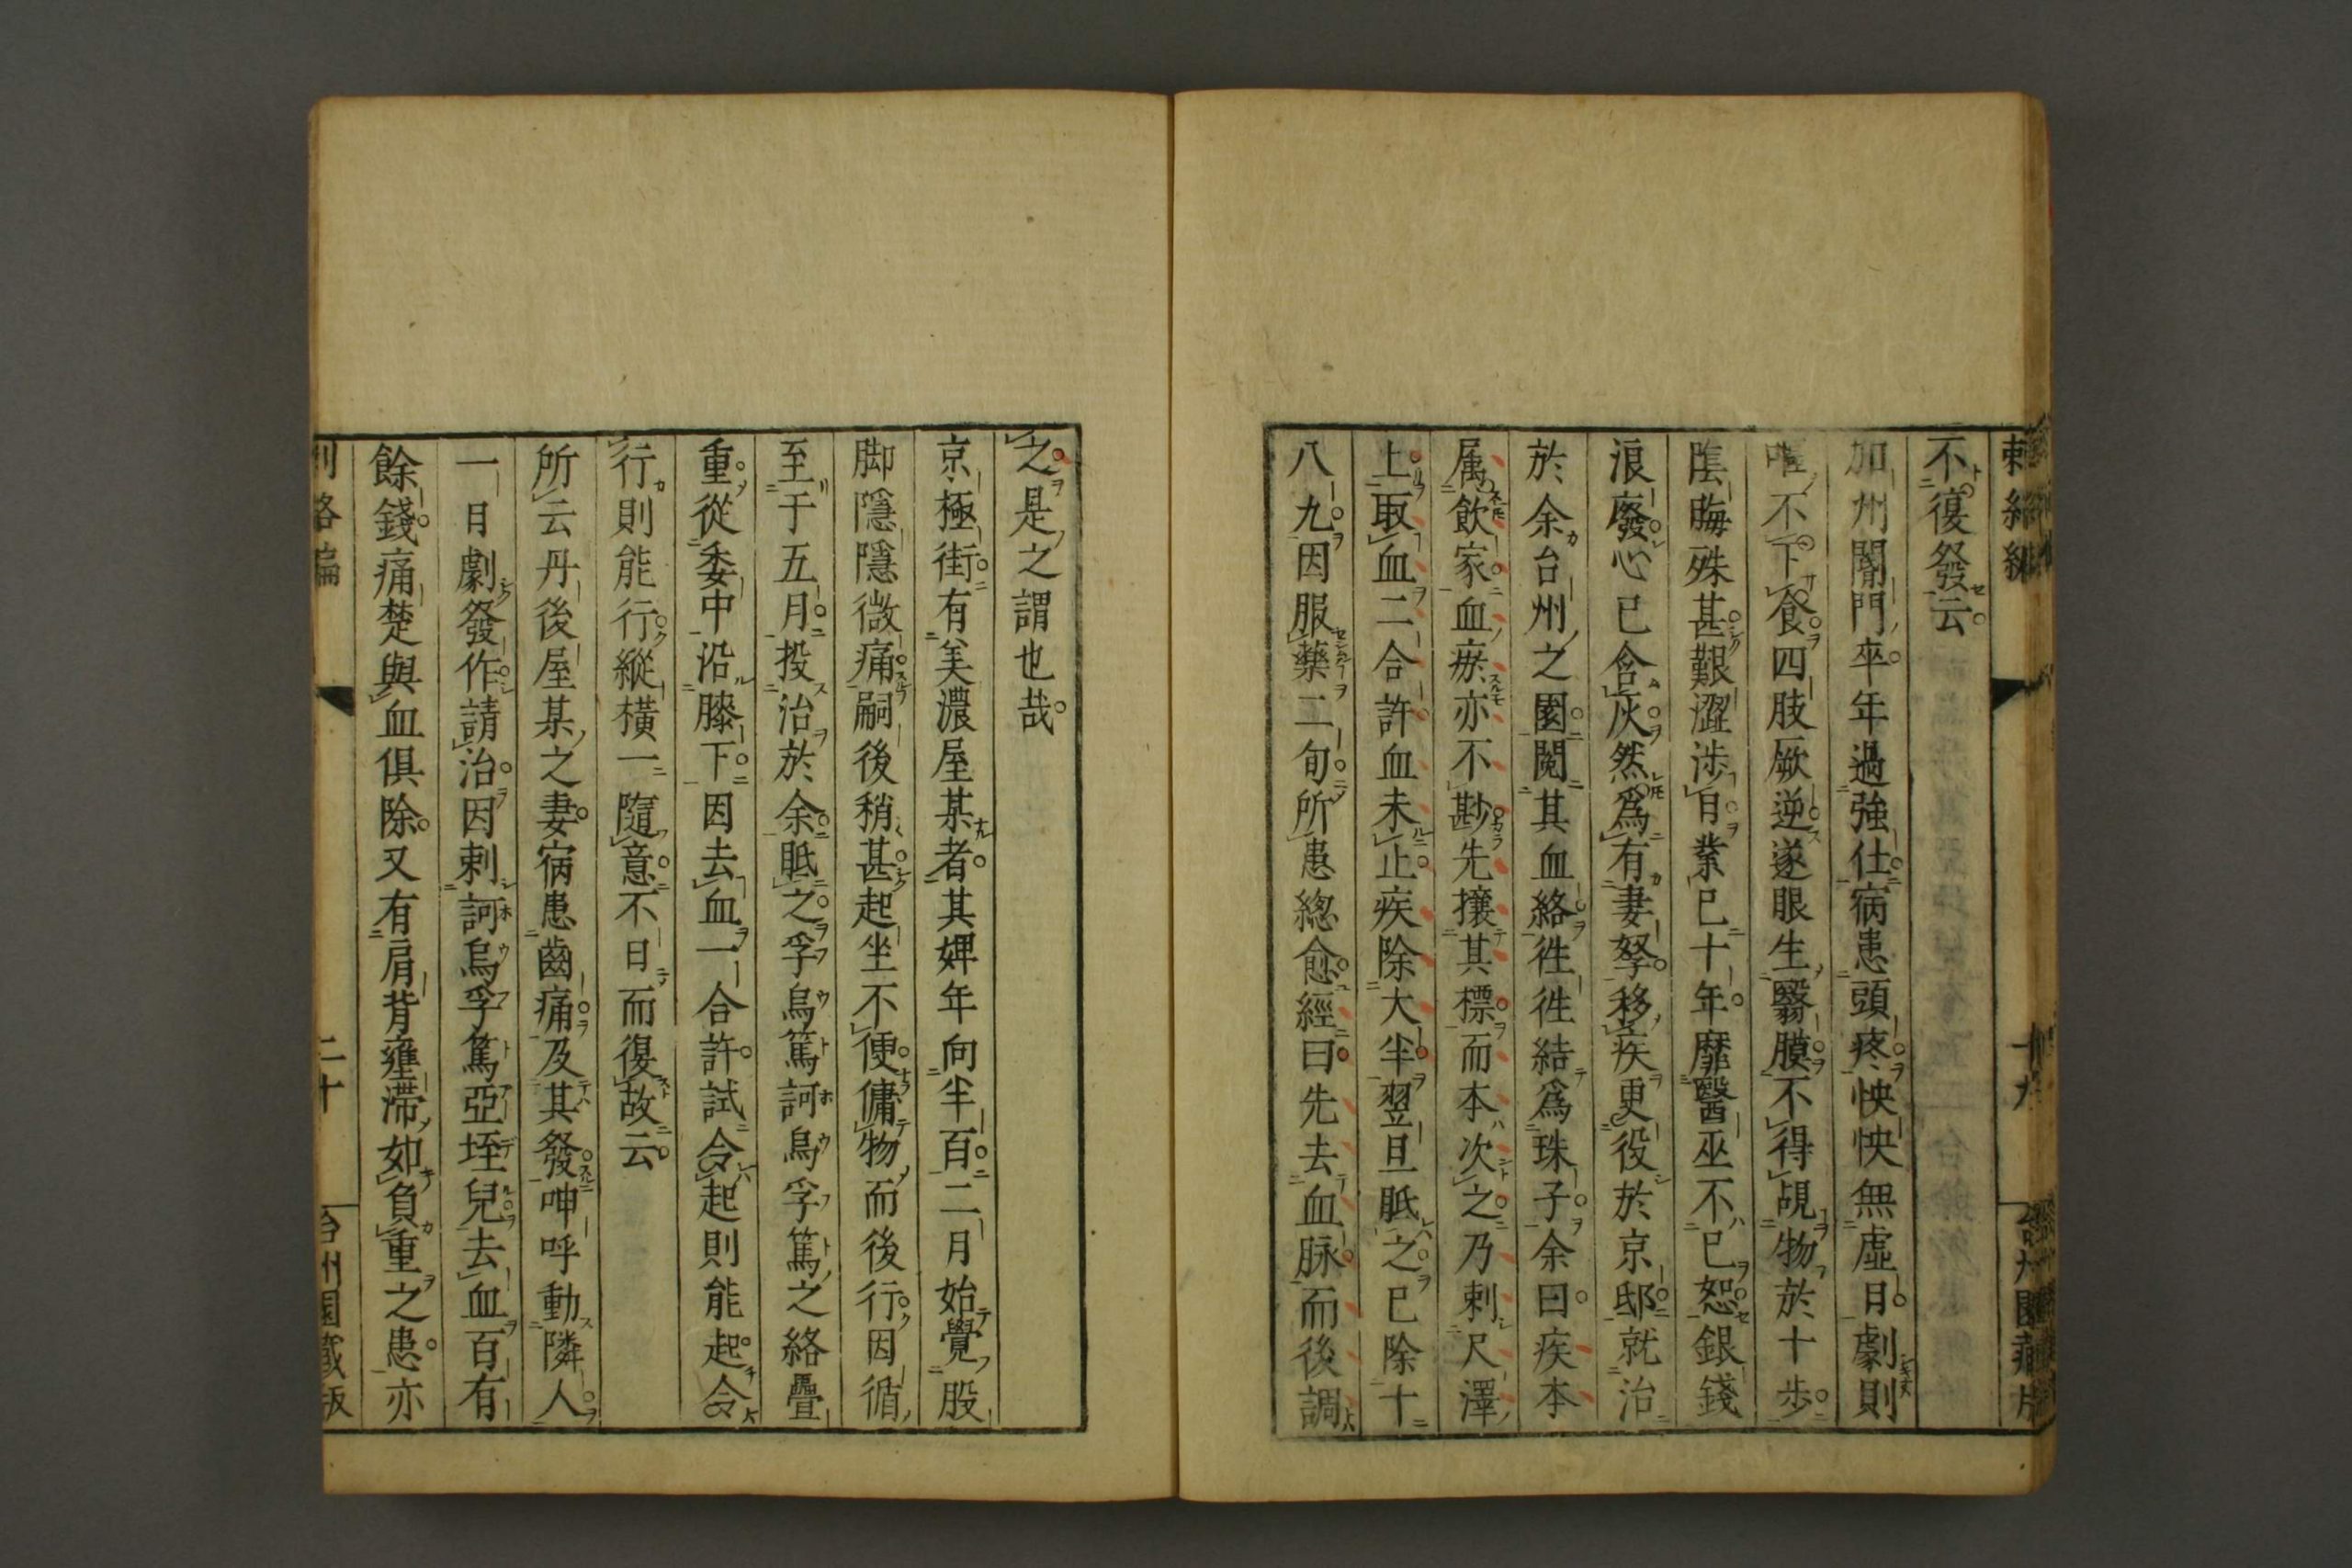 刺絡編
十九
台州園藏版
不復發云
加州閽門卒年過強仕病患頭疼怏怏無虛日劇則
不下食四肢厥逆遂眼生翳膜不得覘物於十步
陰晦殊甚艱澀涉自業已十年靡醫巫不已恕銀錢
浪廢心已含灰然爲有妻孥移疾更役於京邸就治
於余台州之園閱其血絡徃徃結爲珠子余曰疾本
属飲家血瘀亦不尠先攘其標而本次之乃刺尺澤
上取血二合許血未止疾除大半翌旦眡之已除十
八九因服藥二旬所患總愈經曰先去血脉而後調
之是之謂也哉
京極街有美濃屋某者其婢年向半百二月始覺股
脚隱隱微痛嗣後稍甚起坐不便傭物而後行因循
至于五月投治於余眡之孚烏篤訶烏孚篤之絡疊
重從委中沿膝下因去血一合許試令起則能起令
行則能行縱橫一隨意不日而復故云
所云丹後屋某之妻病患齒痛及其發呻呼動隣人
一日劇發作請治因刺訶烏孚篤亞垤兒去血百有
餘錢痛楚與血俱除又有肩背壅滯如負重之患亦
刺絡編
二十
台州園藏版